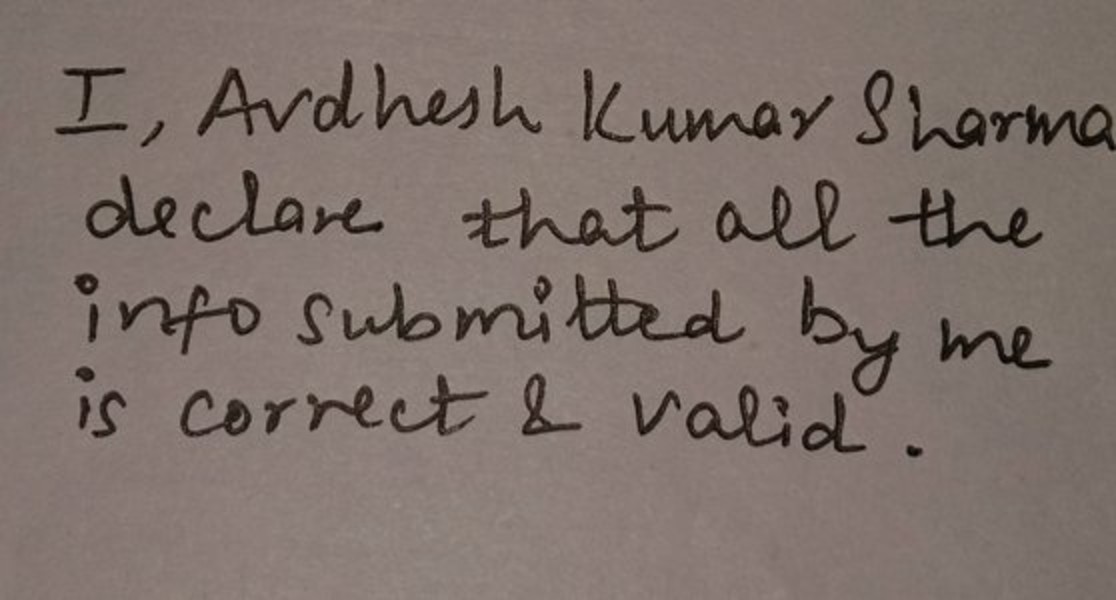 I, Avdhesh Kumar Sharma
declare that all the
info submitted by me
is correct & valid.